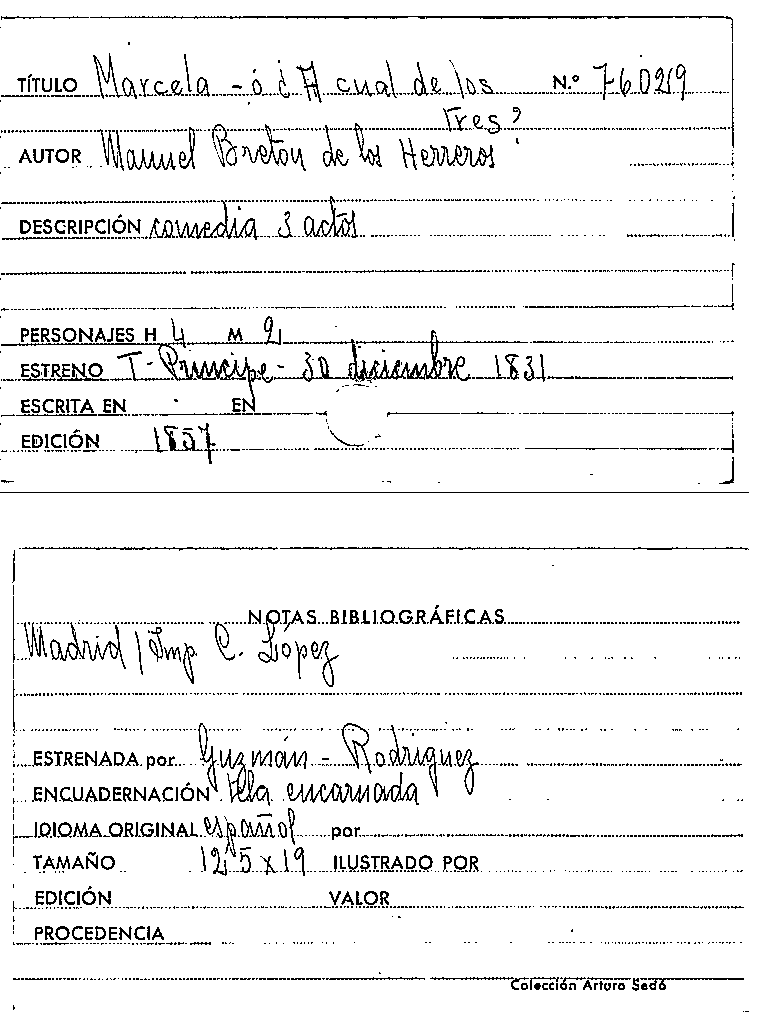 TÍTULO Marcela - ó ¿A cual de los N.º 76029
Tres?
AUTOR Manuel Breton de los Herreros
DESCRIPCIÓN comedia 3 actos
PERSONAJES H 4 M 2
ESTRENO T- Principe- 30 diciembre 1831
ESCRITA EN EN
EDICIÓN 1857
NOTAS BIBLIOGRÁFICAS
Madrid / Imp C. López
ESTRENADA por Guzmán - Rodriguez
ENCUADERNACIÓN tela encarnada
IDIOMA ORIGINAL español por
TAMAÑO 12'5 x 19 ILUSTRADO POR
EDICIÓN VALOR
PROCEDENCIA
Colección Arturo Sedó